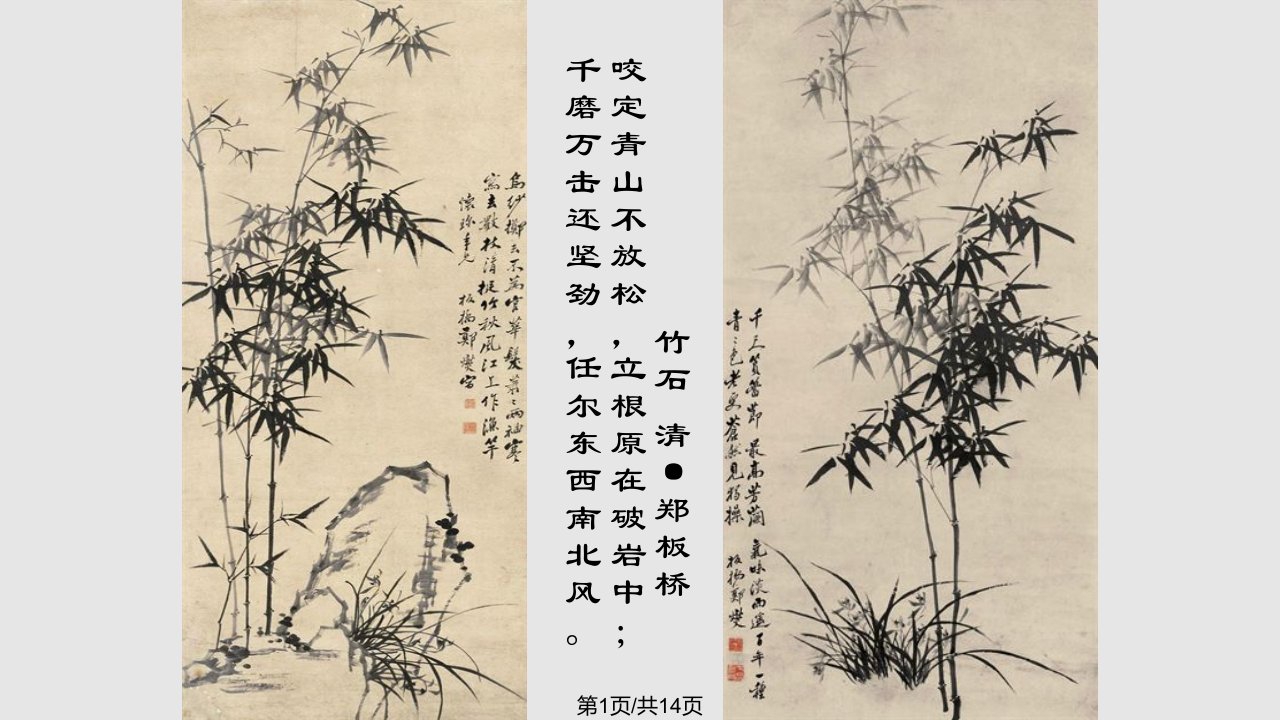 竹石 清●郑板桥
咬定青山不放松，立根原在破岩中；
千磨万击还坚劲，任尔东西南北风。
乌纱掷去不为官华髪萧〻两袖寒
写去数枝清挺竹秋风江上作渔竿
板桥郑燮写
青〻色老更苍然见
板桥郑燮
第1页/共14页